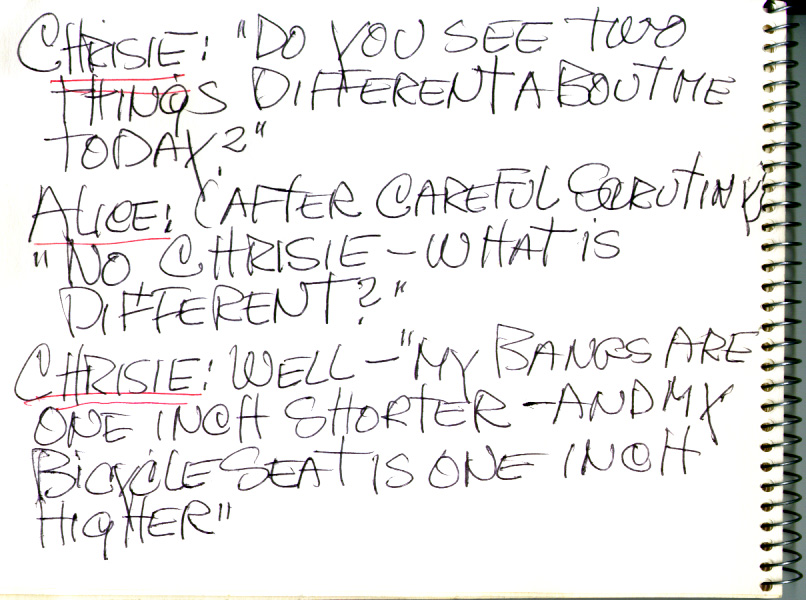 CHRISIE: "DO YOU SEE TWO
THINGS DIFFERENT ABOUT ME
TODAY?"
ALICE: (AFTER CAREFUL SCRUTINY)
"NO CHRISIE - WHAT IS
DIFFERENT?"
CHRISIE: WELL - "MY BANGS ARE
ONE INCH SHORTER - AND MY
BICYCLE SEAT IS ONE INCH
HIGHER"